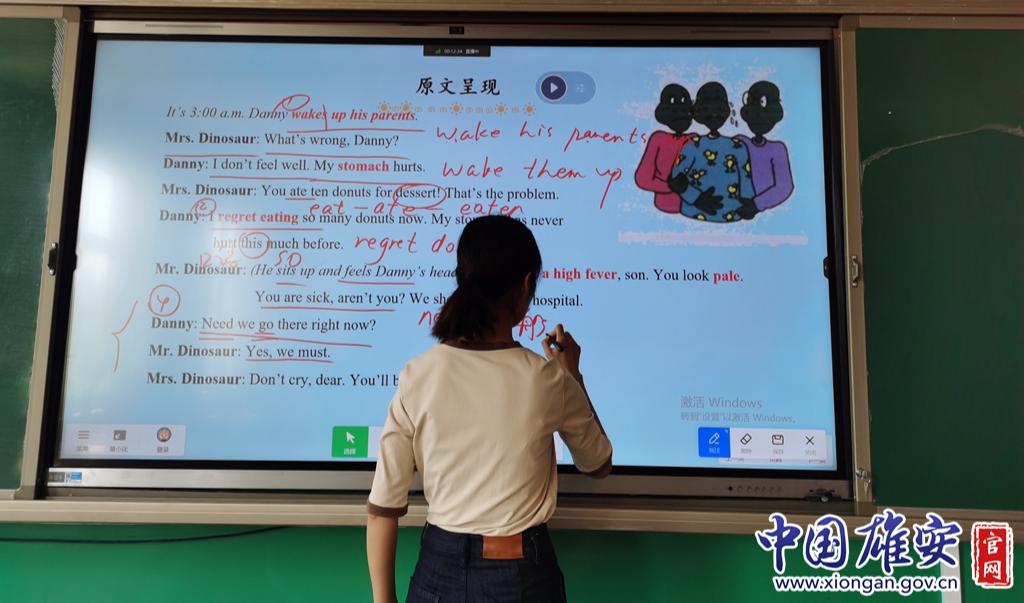 原文呈现
It's 3:00 a.m. Danny wakes up his parents.
wake his parents
Mrs. Dinosaur: What's wrong, Danny?
Danny: I don't feel well. My stomach hurts.
wake them up
Mrs. Dinosaur: You ate ten donuts for dessert! That's the problem.
eat – ate – eaten
Danny: I regret eating so many donuts now. My never
hurt this much before. regret do
so
Mr. Dinosaur: (He sits up and feels Danny's a high fever, son. You look pale.
You are sick, aren't you? We hospital.
Danny: Need we go there right now?
Mr. Dinosaur: Yes, we must.
Mrs. Dinosaur: Don't cry, dear. You'll
激活 Windows
转到"设置"以激活 Windows。
选择
中国雄安
官网
www.xiongan.gov.cn